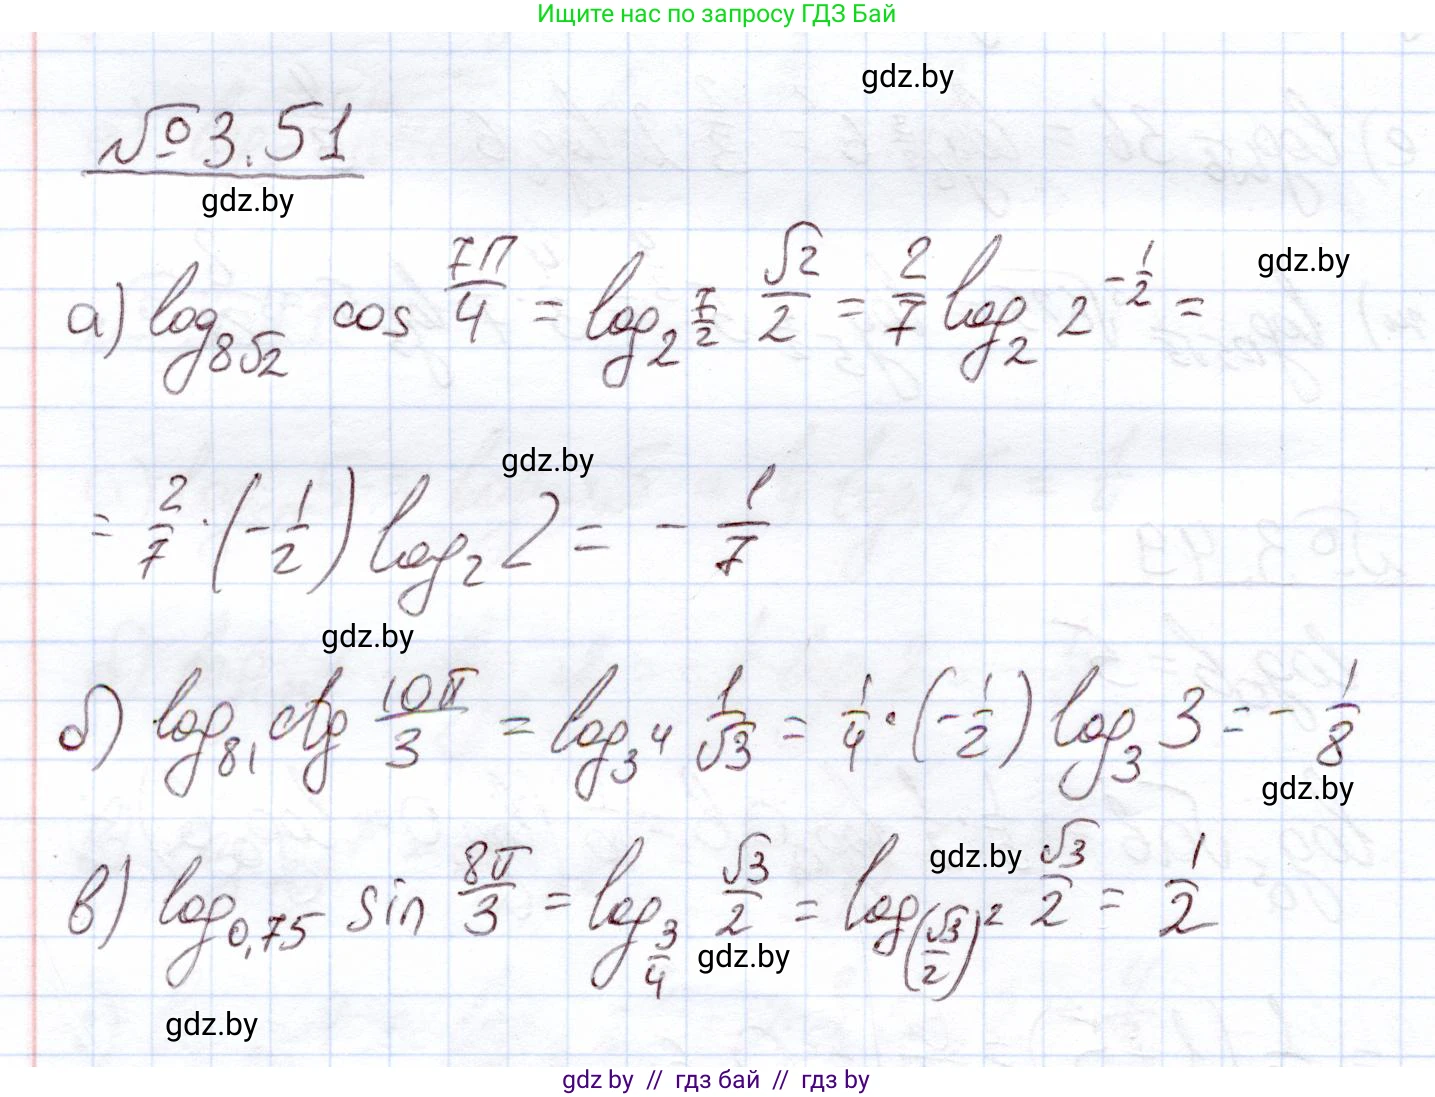 Ищите нас по запросу ГДЗ Бай
gdz.by
№ 3.51
gdz.by
а) log_{8√2} cos 7π/4 = log_{2^{7/2}} √2/2 = 2/7 log_2 2^{-1/2} =
gdz.by
gdz.by
= 2/7 · (-1/2) log_2 2 = - 1/7
gdz.by
б) log_{81} ctg 10π/3 = log_{3^4} 1/√3 = 1/4 · (-1/2) log_3 3 = - 1/8
gdz.by
gdz.by
в) log_{0,75} sin 8π/3 = log_{3/4} √3/2 = log_{(√3/2)^2} √3/2 = 1/2
gdz.by
gdz.by
gdz by // гдз бай // гдз by